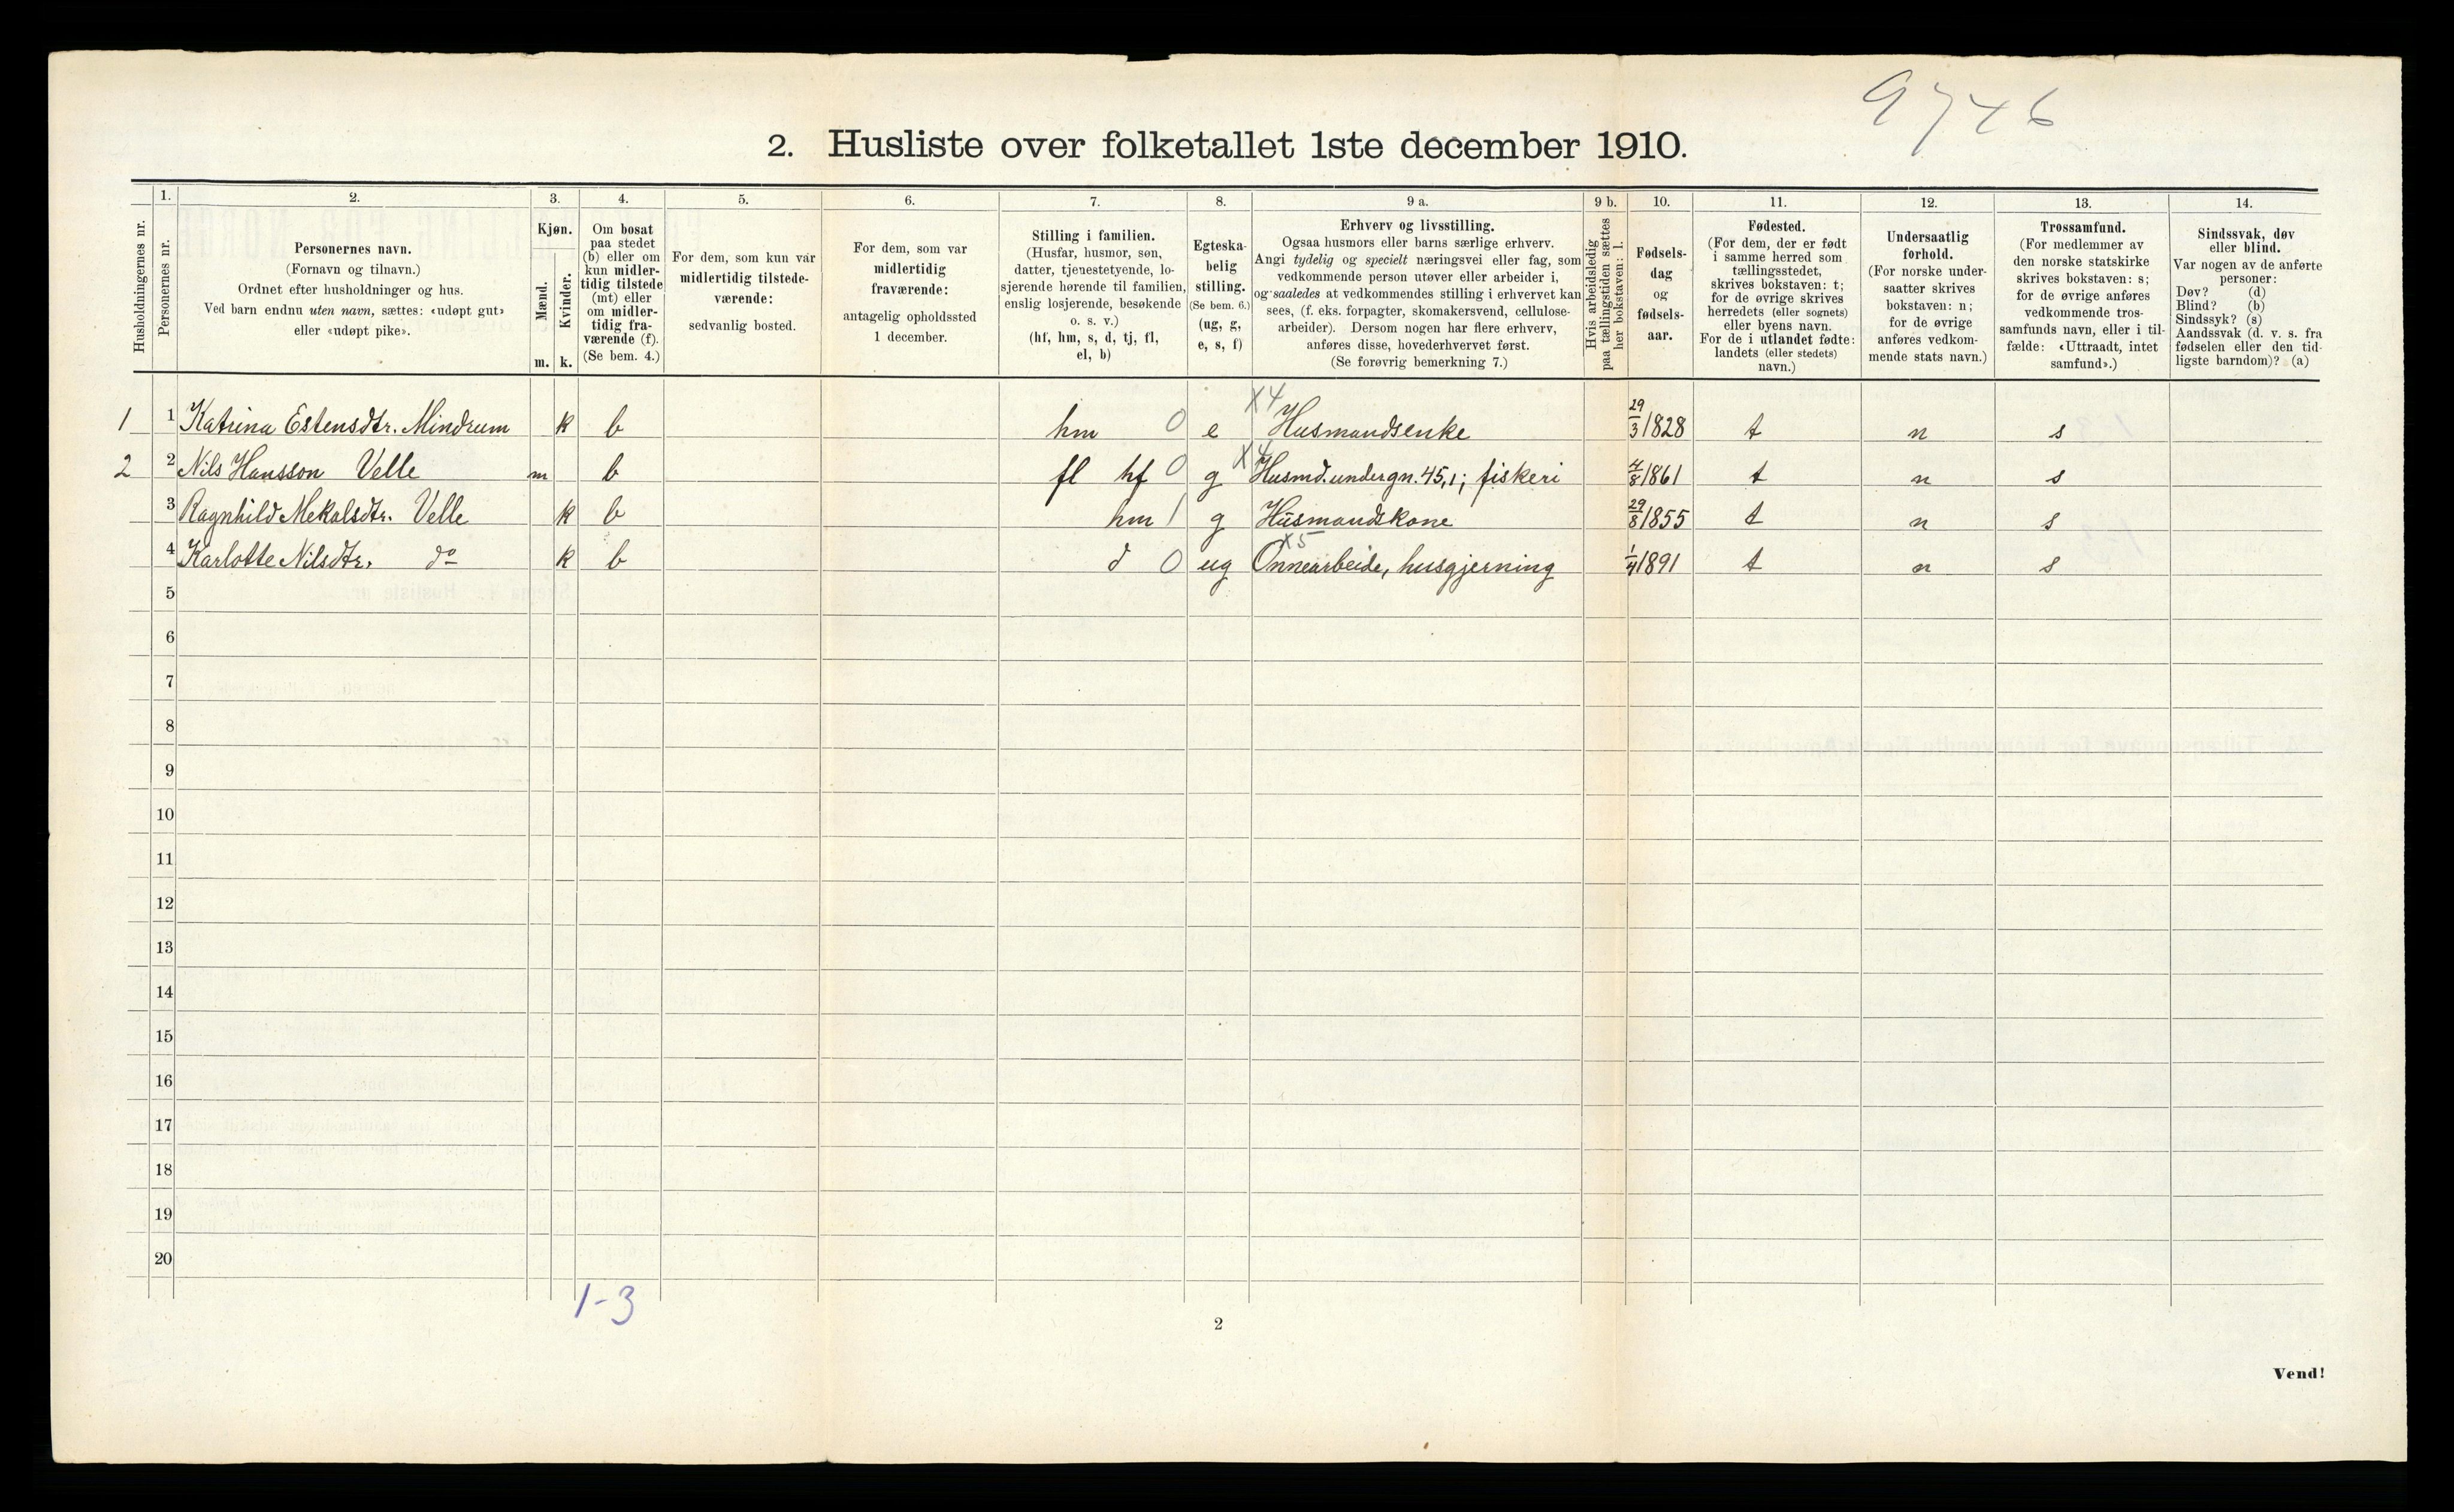 9746
2. Husliste over folketallet 1ste december 1910.
Husholdningernes nr.
1.
Personernes nr.
2.
Personernes navn.
(Fornavn og tilnavn.)
Ordnet efter husholdninger og hus.
Ved barn endnu uten navn, sættes: «udøpt gut»
eller «udøpt pike».
3.
Kjøn.
Mænd.
Kvinder.
m. k.
4.
Om bosat
paa stedet
(b) eller om
kun midler-
tidig tilstede
(mt) eller
om midler-
tidig fra-
værende (f).
(Se bem. 4.)
5.
For dem, som kun var
midlertidig tilstede-
værende:
sedvanlig bosted.
6.
For dem, som var
midlertidig
fraværende:
antagelig opholdssted
1 december.
7.
Stilling i familien.
(Husfar, husmor, søn,
datter, tjenestetyende, lo-
sjerende hørende til familien,
enslig losjerende, besøkende
o. s. v.)
(hf, hm, s, d, tj, fl,
el, b)
8.
Egteska-
belig
stilling.
(Se bem. 6.)
(ug, g,
e, s, f)
9 a.
Erhverv og livsstilling.
Ogsaa husmors eller barns særlige erhverv.
Angi tydelig og specielt næringsvei eller fag, som
vedkommende person utøver eller arbeider i,
og saaledes at vedkommendes stilling i erhvervet kan
sees, (f. eks. forpagter, skomakersvend, cellulose-
arbeider). Dersom nogen har flere erhverv,
anføres disse, hovederhvervet først.
(Se forøvrig bemerkning 7.)
9 b.
Hvis arbeidsledig
paa tællingstiden sættes
her bokstaven: l.
10.
Fødsels-
dag
og
fødsels-
aar.
11.
Fødested.
(For dem, der er født
i samme herred som
tællingsstedet,
skrives bokstaven: t;
for de øvrige skrives
herredets (eller sognets)
eller byens navn.
For de i utlandet fødte:
landets (eller stedets)
navn.)
12.
Undersaatlig
forhold.
(For norske under-
saatter skrives
bokstaven: n;
for de øvrige
anføres vedkom-
mende stats navn.)
13.
Trossamfund.
(For medlemmer av
den norske statskirke
skrives bokstaven: s;
for de øvrige anføres
vedkommende tros-
samfunds navn, eller i til-
fælde: «Uttraadt, intet
samfund».)
14.
Sindssvak, døv
eller blind.
Var nogen av de anførte
personer:
Døv? (d)
Blind? (b)
Sindssyk? (s)
Aandssvak (d. v. s. fra
fødselen eller den tid-
ligste barndom)? (a)
1 1 Katrina Estensdtr. Mindrum k b hm 0 e X4 Husmandsenke 29/3 1828 t n s
2 2 Nils Hansson Velle m b fl hf 0 g X4 Husmd. under gn. 45,1; fiskeri 4/8 1861 t n s
3 Ragnhild Mekalsdtr. Velle k b hm 1 g Husmandskone 29/8 1855 t n s
4 Karlotte Nilsdtr. do k b d 0 ug X5 Onnearbeide, husgjerning 1/4 1891 t n s
5
6
7
8
9
10
11
12
13
14
15
16
17
18
19
20
1-3
2
Vend!